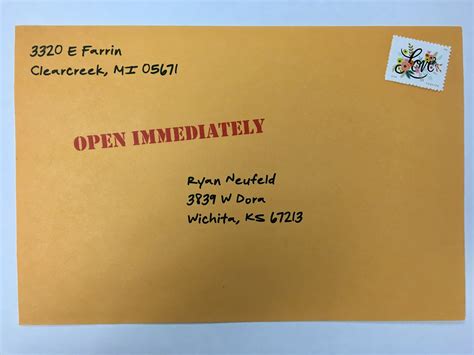 3320 E Farrin
Clearcreek, MI 05671
Love
OPEN IMMEDIATELY
Ryan Neufeld
3839 W Dora
Wichita, KS 67213